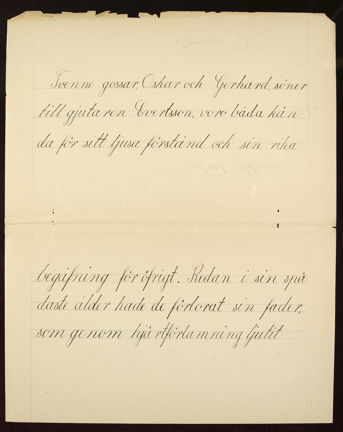 Tvenne gossar, Oskar och Gerhard, söner
till gjutaren Evertsson, voro båda kän-
da för sitt ljusa förstånd och sin rika
begåfning för öfrigt. Redan i sin spä
daste ålder hade de förlorat sin fader,
som genom hjärtförlamning ljutit